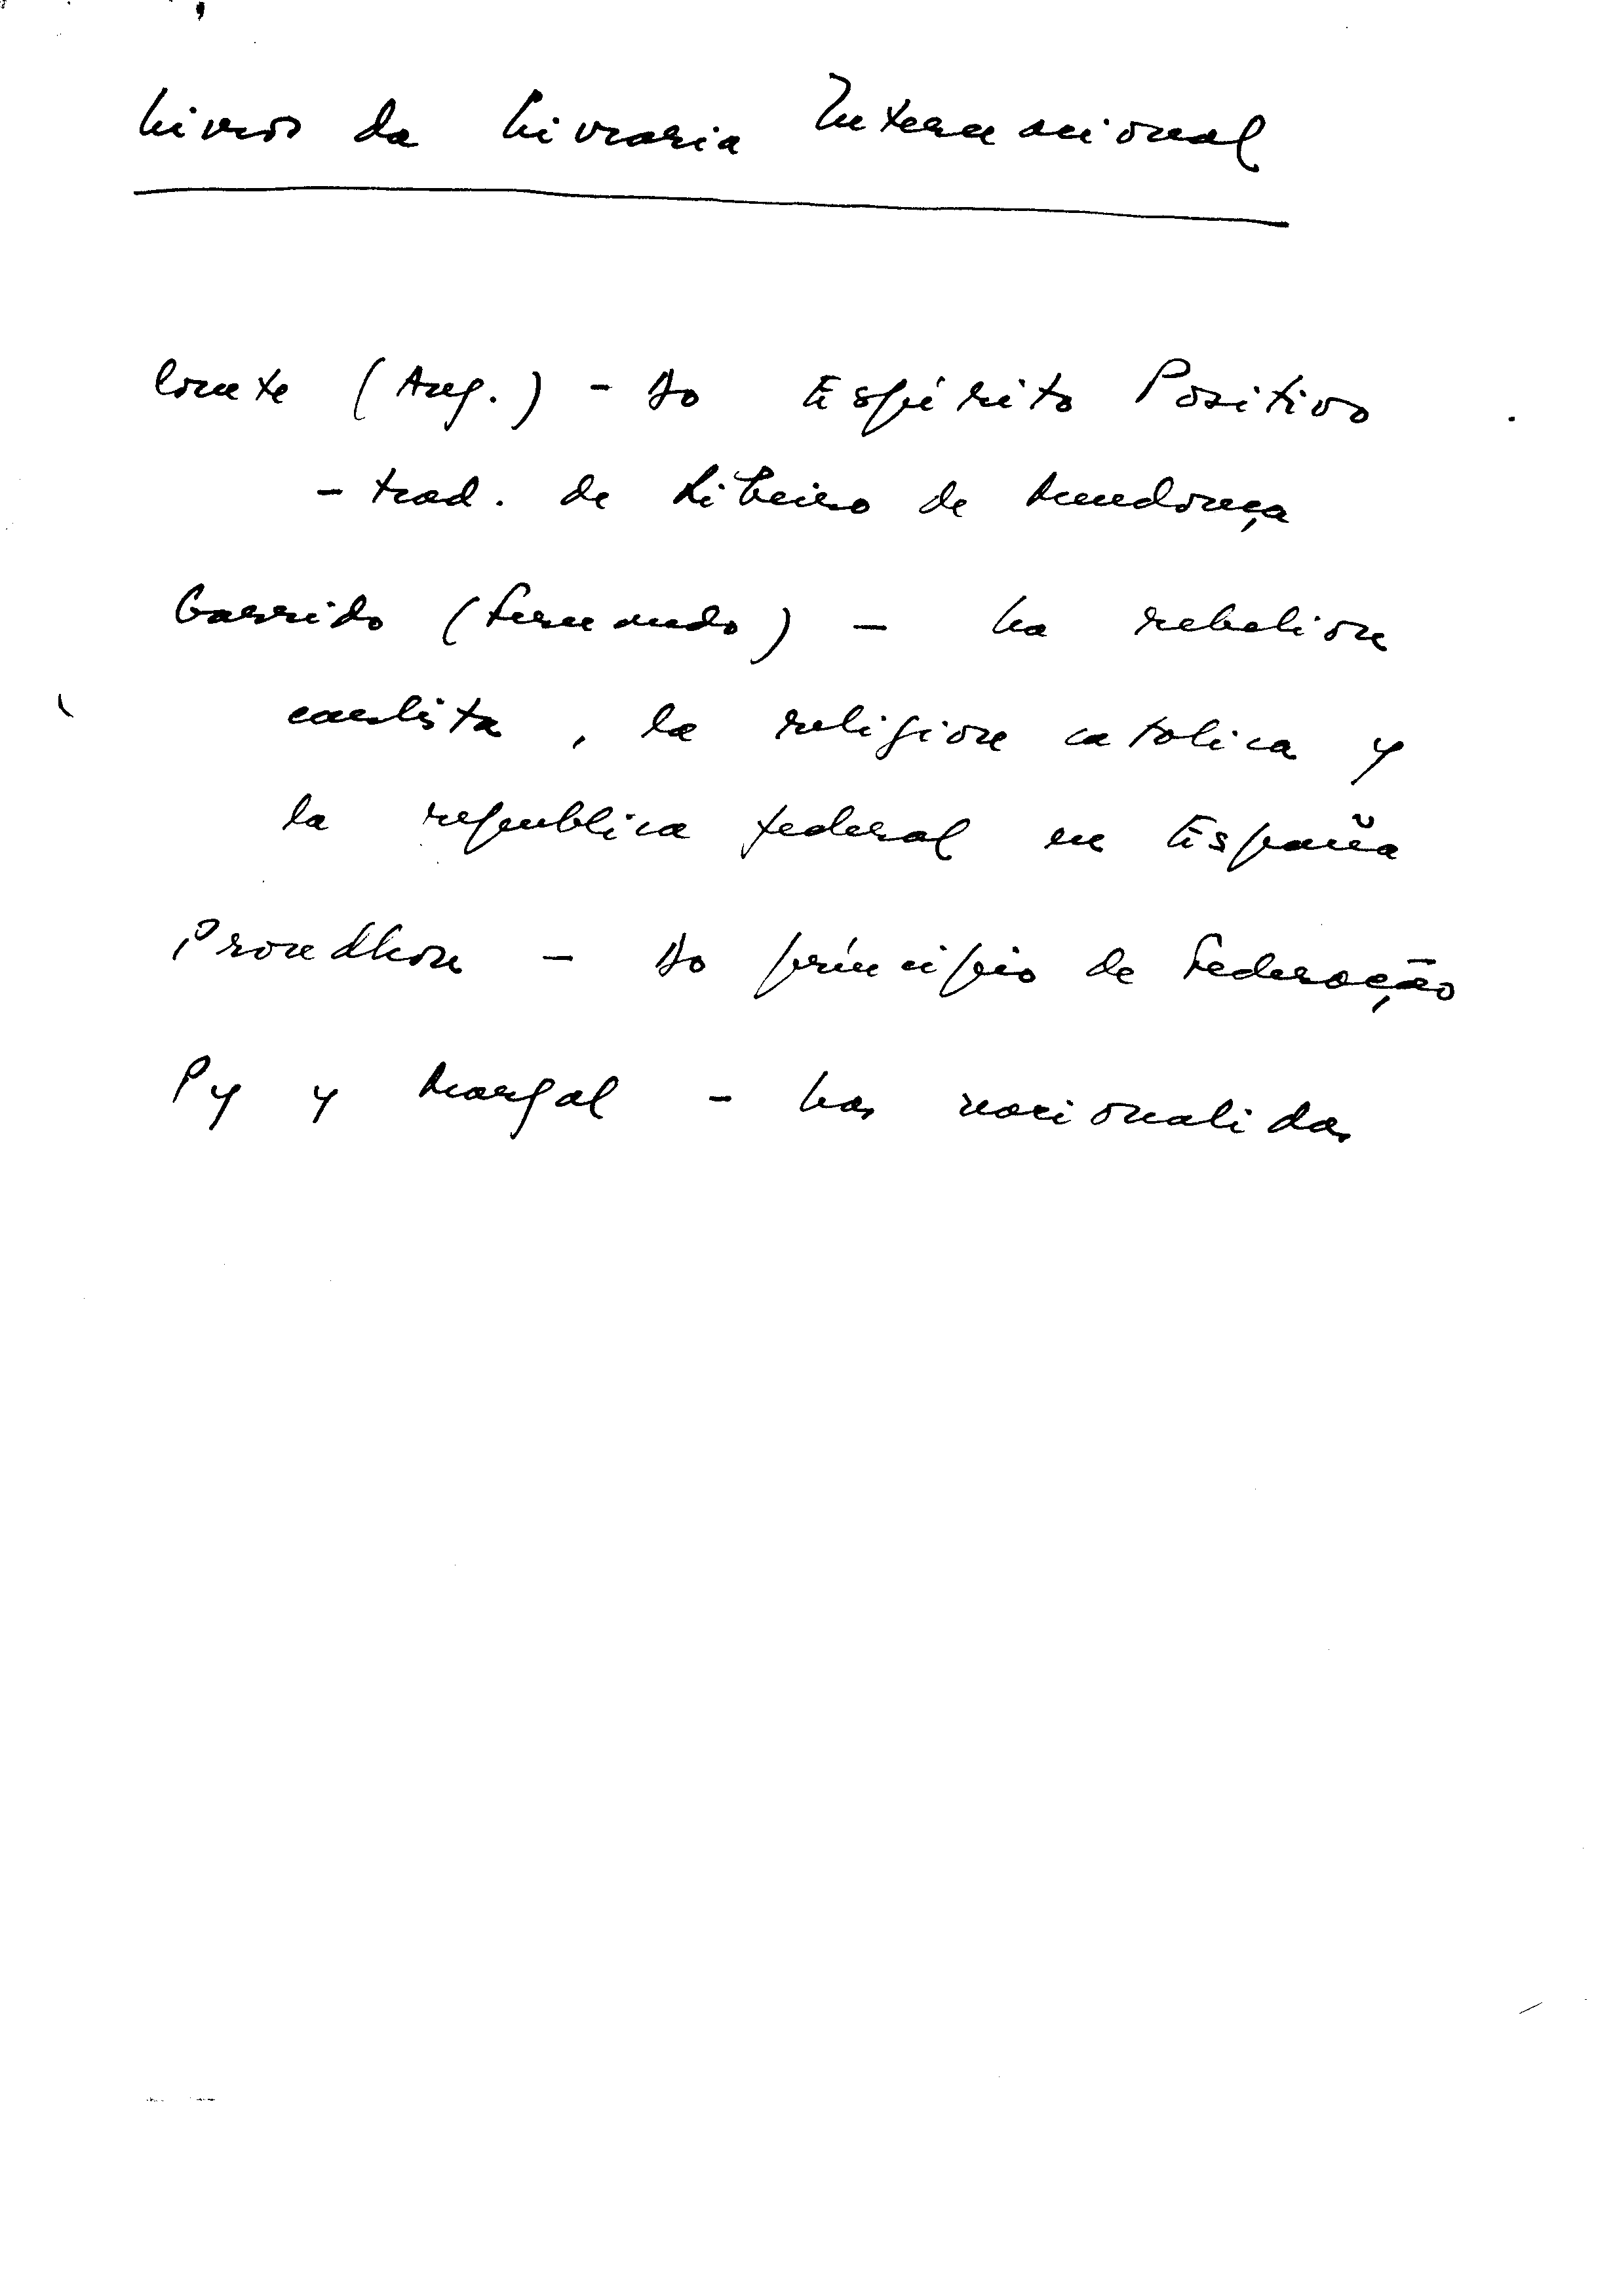 Livros da Livraria Internacional
Comte (Aug.) - Do Espírito Positivo
- trad. de Ribeiro de Mendonça
Garrido (Fernando) - La rebelion
carlista, la religion catolica y
la republica federal en España
Proudhon - Do príncipio de Federação
Py y Margal - Las nacionalidas